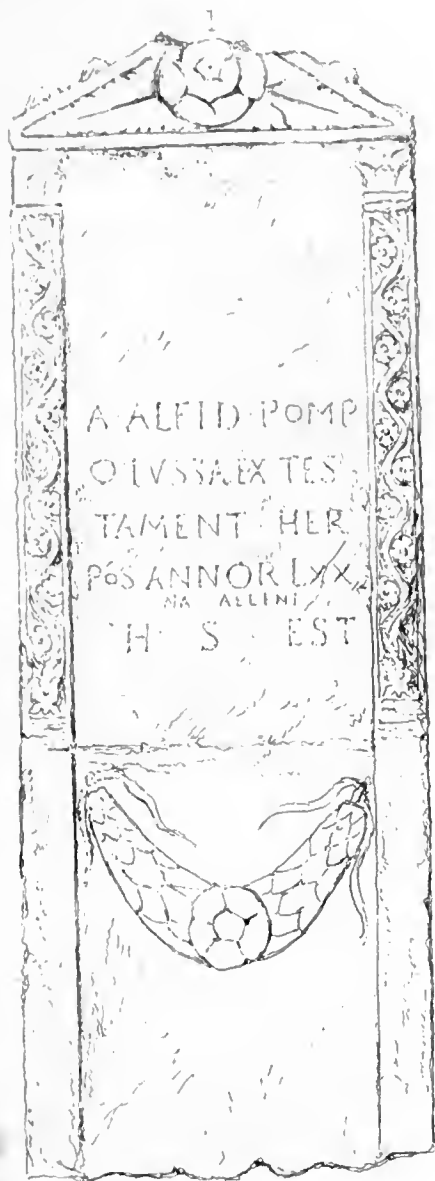 A·ALFID·POMP
O LVSSA EX TES
TAMENT HER
POS ANNOR LXX
NA ALLENI
H S EST